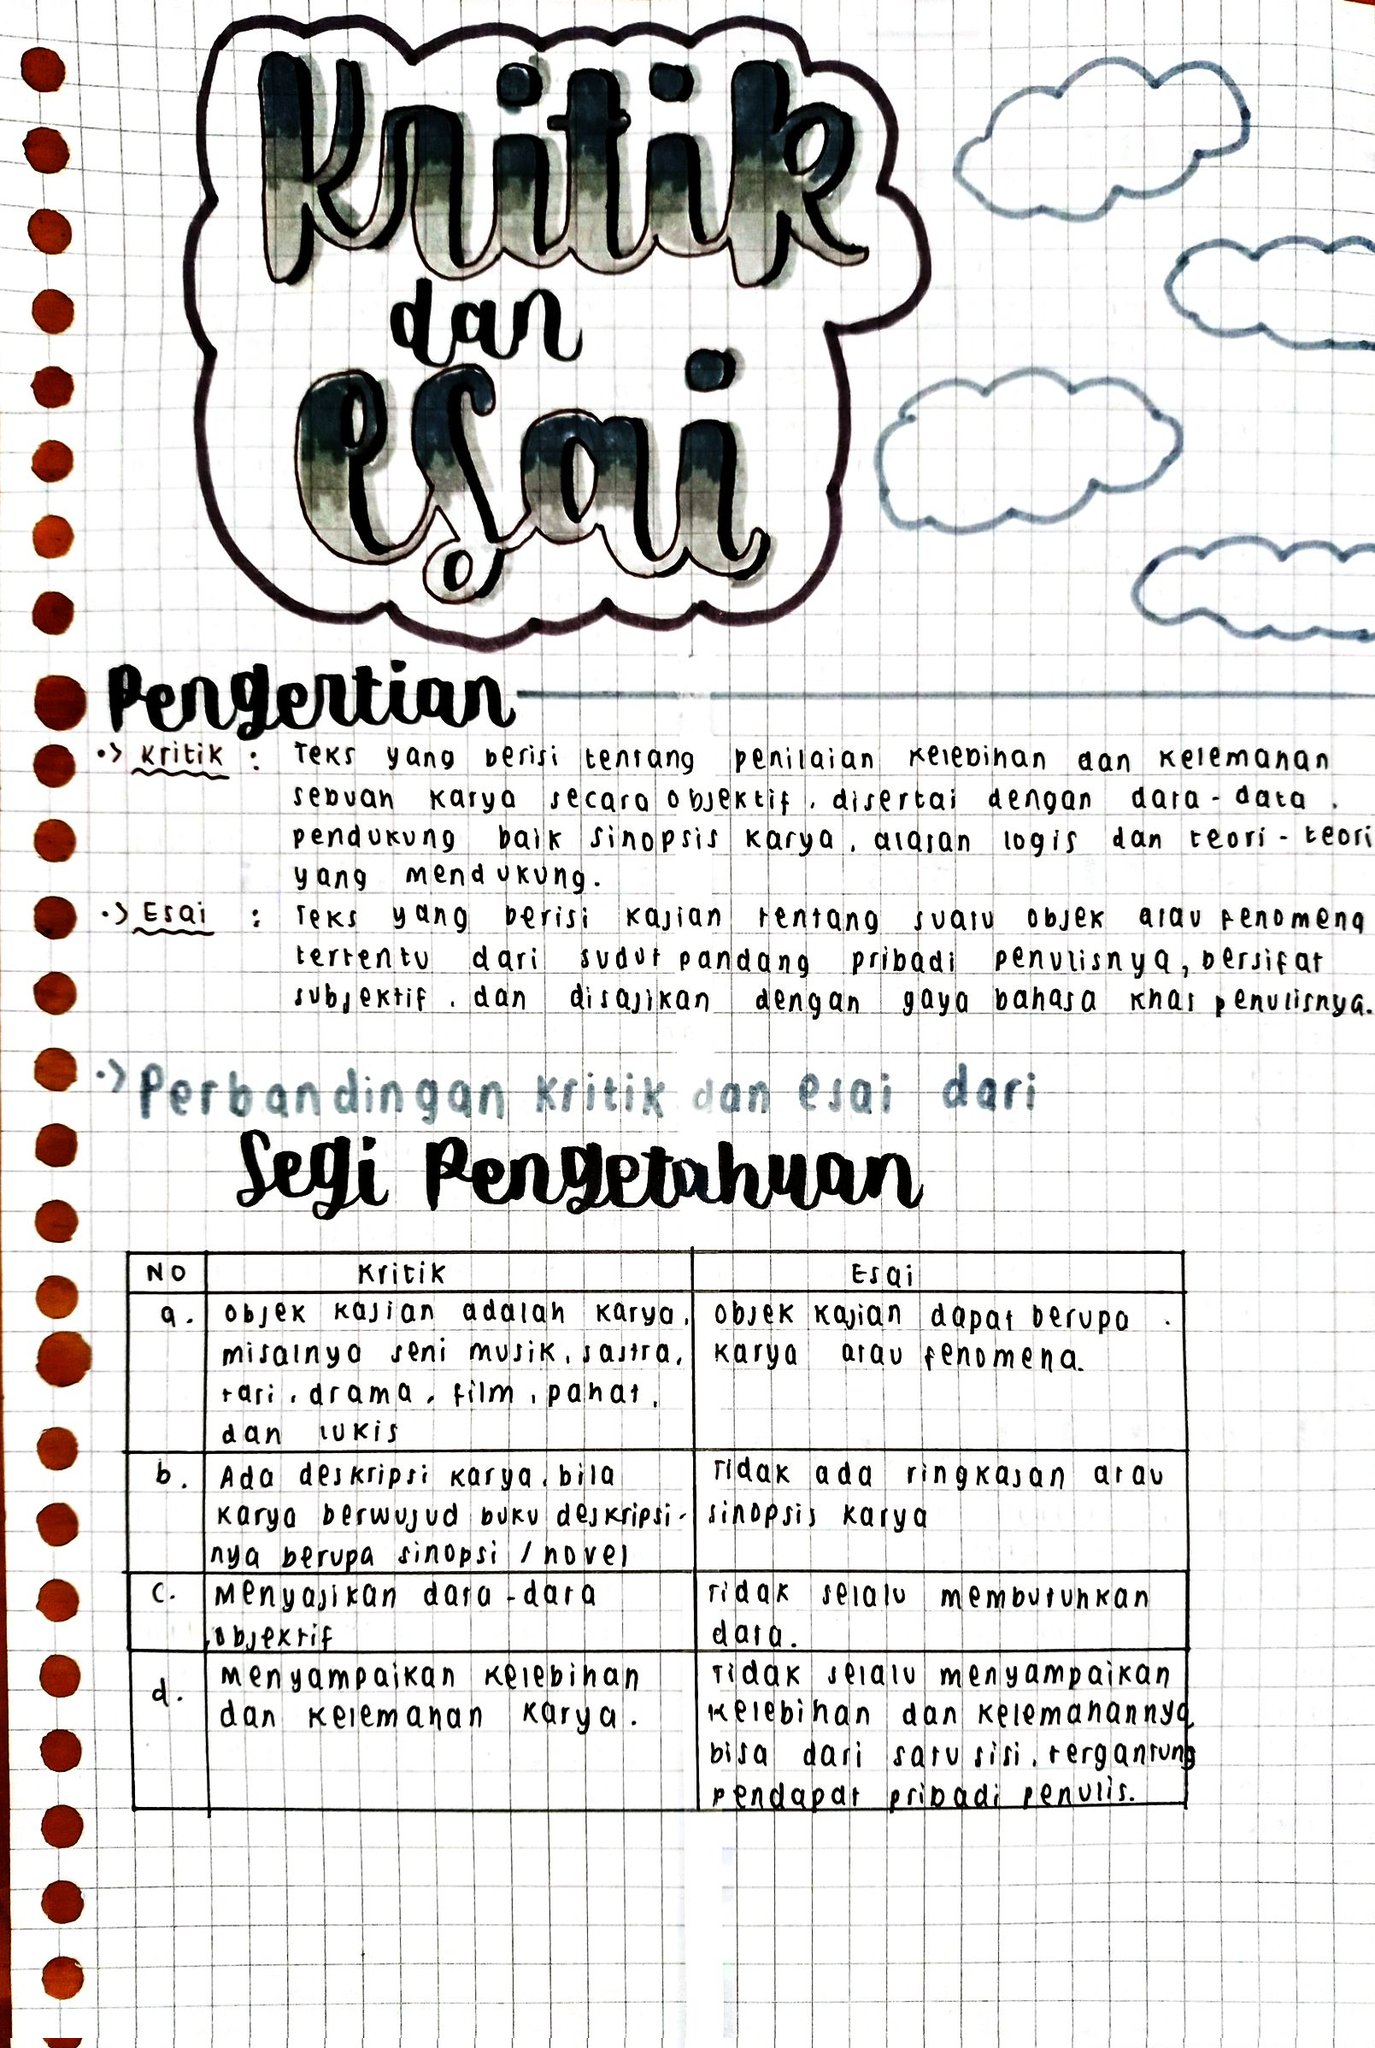 Kritik
dan
esai
Pengertian
•> Kritik : Teks yang berisi tentang penilaian kelebihan dan kelemahan
sebuah karya secara objektif, disertai dengan data-data.
pendukung baik sinopsis karya, alasan logis dan teori-teori
yang mendukung.
•> Esai : Teks yang berisi kajian tentang suatu objek atau fenomena
tertentu dari sudut pandang pribadi penulisnya, bersifat
subjektif, dan disajikan dengan gaya bahasa khas penulisnya.
•> Perbandingan kritik dan esai dari
Segi Pengetahuan
NO Kritik Esai
a. Objek kajian adalah karya, Objek kajian dapat berupa .
misalnya seni musik, sastra, karya atau fenomena.
tari, drama, film, pahat,
dan lukis
b. Ada deskripsi karya, bila Tidak ada ringkasan atau
karya berwujud buku deskripsi- sinopsis karya
nya berupa sinopsi / novel
c. Menyajikan data-data Tidak selalu membutuhkan
objektif data.
d. Menyampaikan kelebihan Tidak selalu menyampaikan
dan kelemahan karya. kelebihan dan kelemahannya,
bisa dari satu sisi, tergantung
pendapat pribadi penulis.